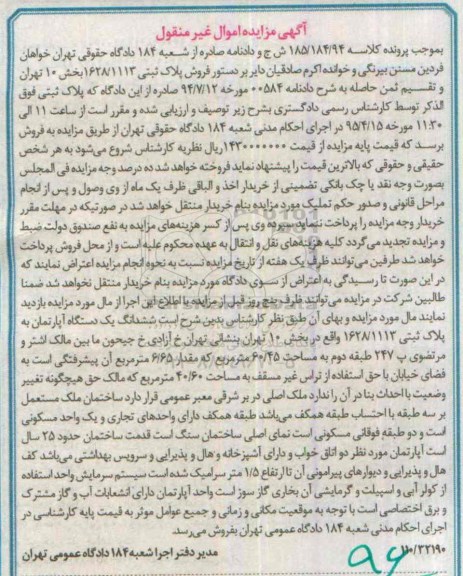 آگهی مزایده اموال غیر منقول
بموجب پرونده کلاسه ۱۸۵/۱۸۴/۹۴ ش ج و دادنامه صادره از شعبه ۱۸۴ دادگاه حقوقی تهران خواهان
فردین مستن بیرنگی و خوانده اکرم صادقیان دایر بر دستور فروش پلاک ثبتی ۱۶۲۸/۱۱۱۳ بخش ۱۰ تهران
و تقسیم ثمن حاصله به شرح دادنامه ۰۰۵۸۴ مورخه ۹۴/۷/۱۲ صادره از این دادگاه که پلاک ثبتی فوق
الذکر توسط کارشناس رسمی دادگستری بشرح زیر توصیف و ارزیابی شده و مقرر است از ساعت ۱۱ الی
۱۱:۳۰ مورخه ۹۵/۴/۱۵ در اجرای احکام مدنی شعبه ۱۸۴ دادگاه حقوقی تهران از طریق مزایده به فروش
برسد که قیمت پایه مزایده از قیمت ۱۴۳۰۰۰۰۰۰۰ ریال نظریه کارشناس شروع می‌شود به هر شخص
حقیقی و حقوقی که بالاترین قیمت را پیشنهاد نماید فروخته خواهد شد ده درصد وجه مزایده فی المجلس
بصورت وجه نقد یا چک بانکی تضمینی از خریدار اخذ و الباقی ظرف یک ماه از وی وصول و پس از انجام
مراحل قانونی و صدور حکم تملیک مورد مزایده بنام خریدار منتقل خواهد شد در صورتیکه در مهلت مقرر
خریدار وجه مزایده را پرداخت ننماید سپرده وی پس از کسر هزینه‌های مزایده به نفع صندوق دولت ضبط
و مزایده تجدید می‌گردد کلیه هزینه‌های نقل و انتقال به عهده محکوم علیه است و از محل فروش پرداخت
خواهد شد طرفین می‌توانند ظرف یک هفته از تاریخ مزایده نسبت به نحوه انجام مزایده اعتراض نمایند که
در این صورت تا رسیدگی به اعتراض از سوی دادگاه مورد مزایده بنام خریدار منتقل نخواهد شد ضمنا
طالبین شرکت در مزایده می‌توانند ظرف پنج روز قبل از مزایده با اطلاع این اجرا از مال مورد مزایده بازدید
نمایند مال مورد مزایده و بهای آن طبق نظر کارشناس بدین شرح است ششدانگ یک دستگاه آپارتمان به
پلاک ثبتی ۱۶۲۸/۱۱۱۳ واقع در بخش ۱۰ تهران بنشانی تهران خ آزادی خ جیحون ما بین مالک اشتر و
مرتضوی پ ۲۴۷ طبقه دوم به مساحت ۶۰/۴۵ مترمربع که مقدار ۶/۶۵ مترمربع آن پیشرفتگی است به
فضای خیابان با حق استفاده از تراس غیر مسقف به مساحت ۴۰/۶۰ مترمربع که مالک حق هیچگونه تغییر
وضعیت با احداث بنا در آن را ندارد ملک اصلی در بر شرقی معبر عمومی قرار دارد ساختمان ملک مستعمل
بر سه طبقه با احتساب طبقه همکف می‌باشد طبقه همکف دارای واحدهای تجاری و یک واحد مسکونی
است و دو طبقه فوقانی مسکونی است نمای اصلی ساختمان سنگ است قدمت ساختمان حدود ۲۵ سال
است آپارتمان مورد نظر دو اتاق خواب و دارای آشپزخانه و هال و پذیرایی و سرویس بهداشتی می‌باشد کف
هال و پذیرایی و دیوارهای پیرامونی آن تا ارتفاع ۱/۵ متر سرامیک شده است سیستم سرمایش واحد استفاده
از کولر آبی و اسپیلت و گرمایشی آن بخاری گاز سوز است واحد آپارتمان دارای انشعابات آب و گاز مشترک
و برق اختصاصی است با توجه به موقعیت مکانی و زمانی و جمیع عوامل موثر به قیمت پایه کارشناسی در
اجرای احکام مدنی شعبه ۱۸۴ دادگاه عمومی تهران بفروش می‌رسد.
۱۱۰/۳۲۱۹۰ مدیر دفتر اجرا شعبه ۱۸۴ دادگاه عمومی تهران